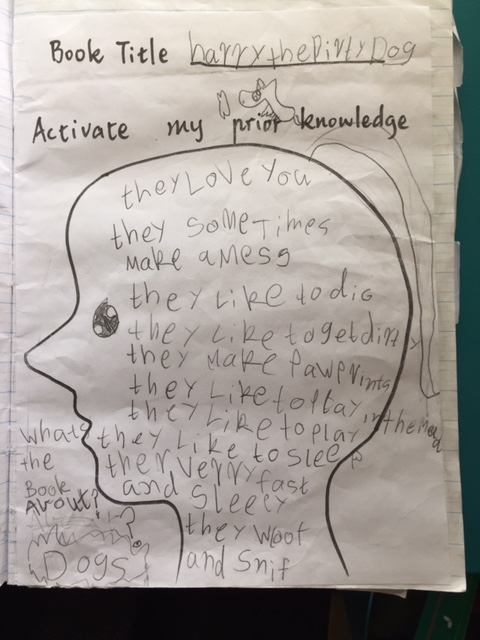 Book Title harry the Dirty Dog
Activate my prior knowledge
they Love You
they SomeTimes
make a Mess
they Like to dig
they Like to get dirty
they Make Pawprints
they Like to Play
they Like to play in the Mud
they Like to sleep
ther verry fast
and Sleepy
they Woof
and Snif
whats
the
Book
About?
Dogs